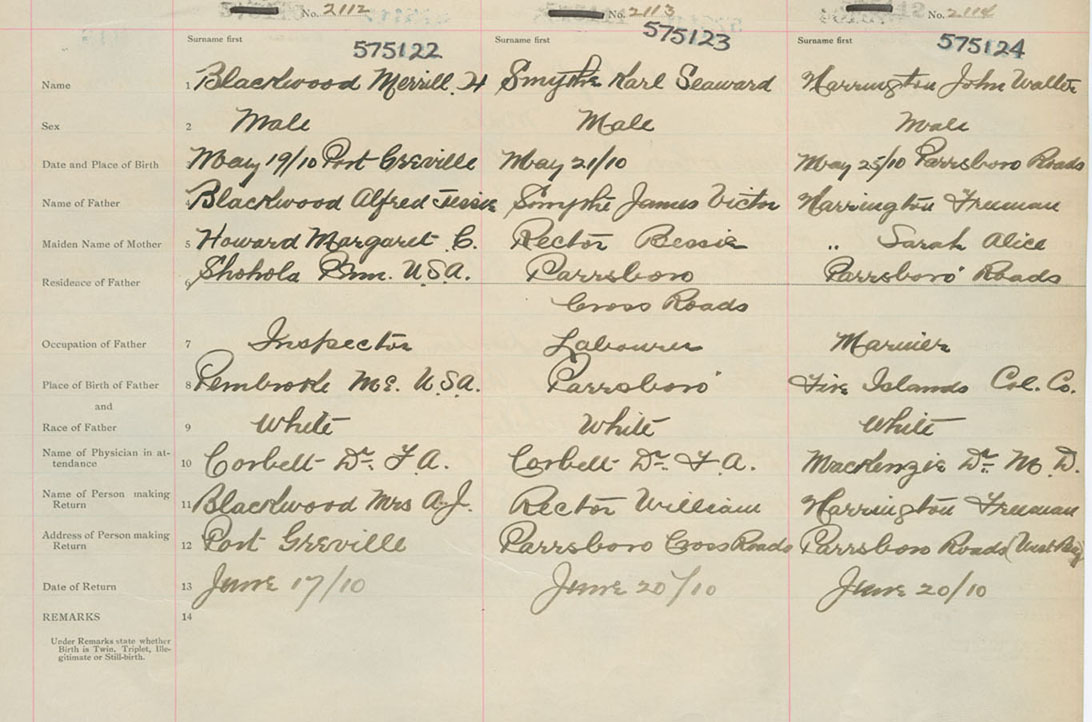 No. 2112 No. 2113 No. 2114
Surname first Surname first Surname first
575122 575123 575124
Name 1 Blackwood Merrill. H Smythe Karl Seaward Harrington John Walter
Sex 2 Male Male Male
Date and Place of Birth 3 May 19/10 Port Greville May 21/10 May 25/10 Parrsboro Roads
Name of Father Blackwood Alfred Jessie Smythe James Victor Harrington Freeman
Maiden Name of Mother 5 Howard Margaret C. Rector Bessie " Sarah Alice
Residence of Father 6 Shohola Penn. U.S.A. Parrsboro Parrsboro' Roads
Cross Roads
Occupation of Father 7 Inspector Labourer Marinier
Place of Birth of Father 8 Pembroke Me. U.S.A. Parrsboro' Five Islands Col. Co.
and
Race of Father 9 White White White
Name of Physician in at-
tendance 10 Corbett Dr. F.A. Corbett Dr. F.A. MacKenzie Dr. M.D.
Name of Person making
Return 11 Blackwood Mrs A.J. Rector William Harrington Freeman
Address of Person making
Return 12 Port Greville Parrsboro Cross Roads Parrsboro Roads (West
Date of Return 13 June 17/10 June 20/10 June 20/10
REMARKS 14
Under Remarks state whether
Birth is Twin, Triplet, Ille-
gitimate or Still-birth.